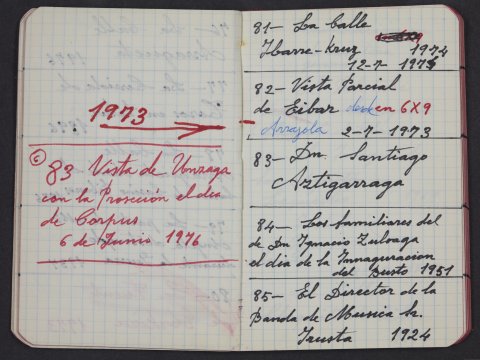 1973
6
83 Vista de Unzaga
con la Prosción el dia
de Corpus
6 de Junio 1976
81- La Calle
Ibarre-Kruz 1974
12-7-1975
82- Vista Parcial
de Eibar desde en 6X9
Arrajola 2-7-1973
83- Dn. Santiago
Aztigarraga
84- Los familiares del
de Dn Ignacio Zuloaga
el dia de la Innaguracion
del Busto 1951
85- El Director de la
Banda de Musica Sr.
Irusta 1924